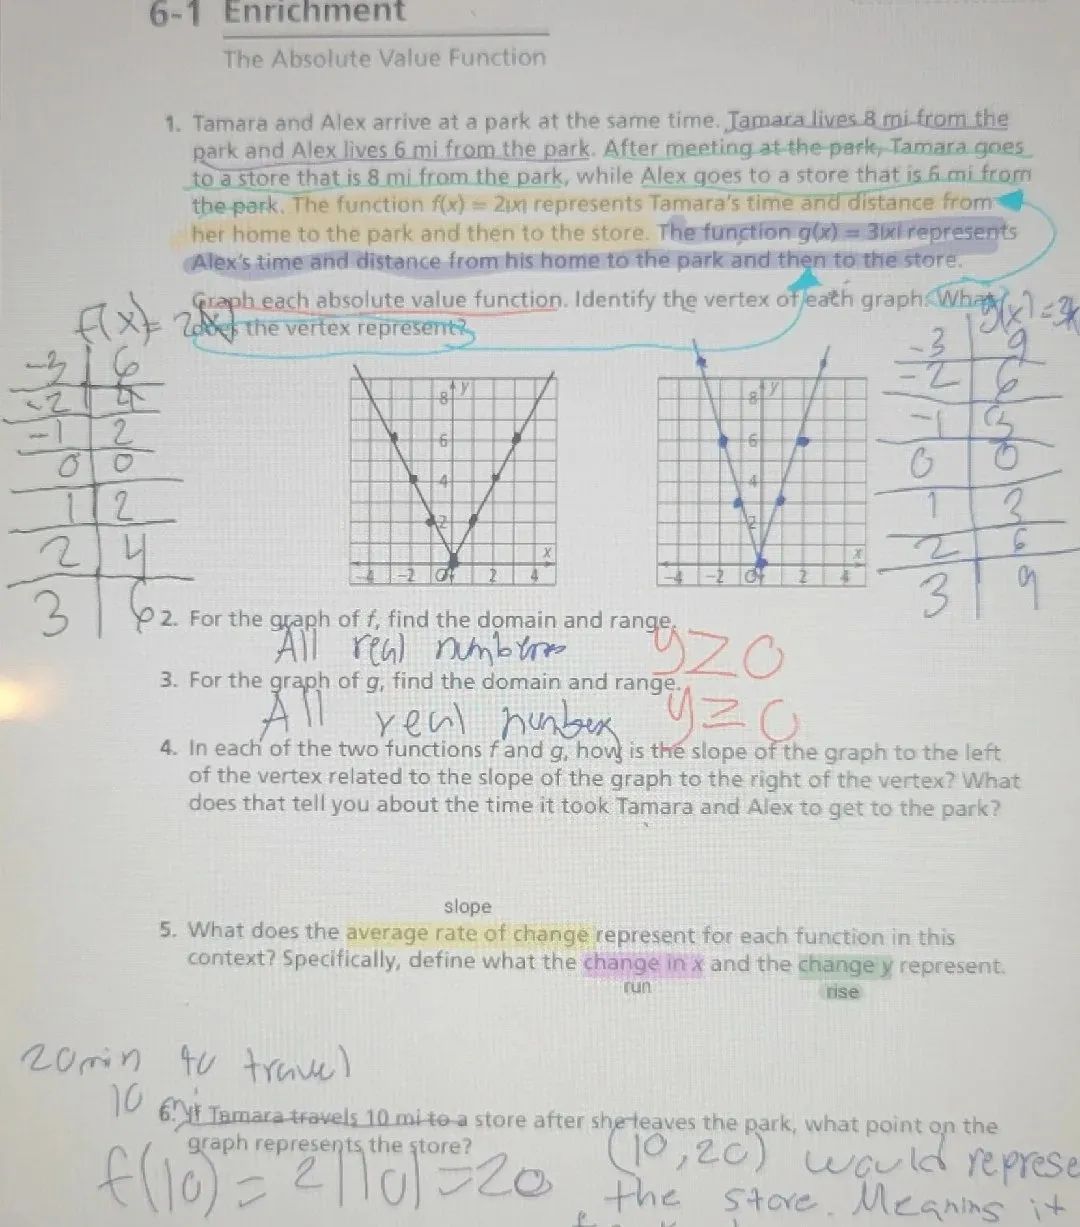 6-1 Enrichment
The Absolute Value Function
1. Tamara and Alex arrive at a park at the same time. Tamara lives 8 mi from the
park and Alex lives 6 mi from the park. After meeting at the park, Tamara goes
to a store that is 8 mi from the park, while Alex goes to a store that is 6 mi from
the park. The function f(x) = 2|x| represents Tamara's time and distance from
her home to the park and then to the store. The function g(x) = 3|x| represents
Alex's time and distance from his home to the park and then to the store.
Graph each absolute value function. Identify the vertex of each graph. What
does the vertex represent?
f(x)= 2|x|
-3 6
-2 4
-1 2
0 0
1 2
2 4
3 6
8 y
6
4
2
x
-4 -2 O 2 4
8 y
6
4
2
x
-4 -2 O 2 4
g(x)=3
-3 9
-2 6
-1 3
0 0
1 3
2 6
3 9
2. For the graph of f, find the domain and range.
All real numbers y≥0
3. For the graph of g, find the domain and range.
All real number y≥0
4. In each of the two functions f and g, how is the slope of the graph to the left
of the vertex related to the slope of the graph to the right of the vertex? What
does that tell you about the time it took Tamara and Alex to get to the park?
slope
5. What does the average rate of change represent for each function in this
context? Specifically, define what the change in x and the change y represent.
run rise
20min to travel
10 mi
6. If Tamara travels 10 mi to a store after she leaves the park, what point on the
graph represents the store?
f(10) = 2|10|=20
(10,20) would represe
the store. Meaning it